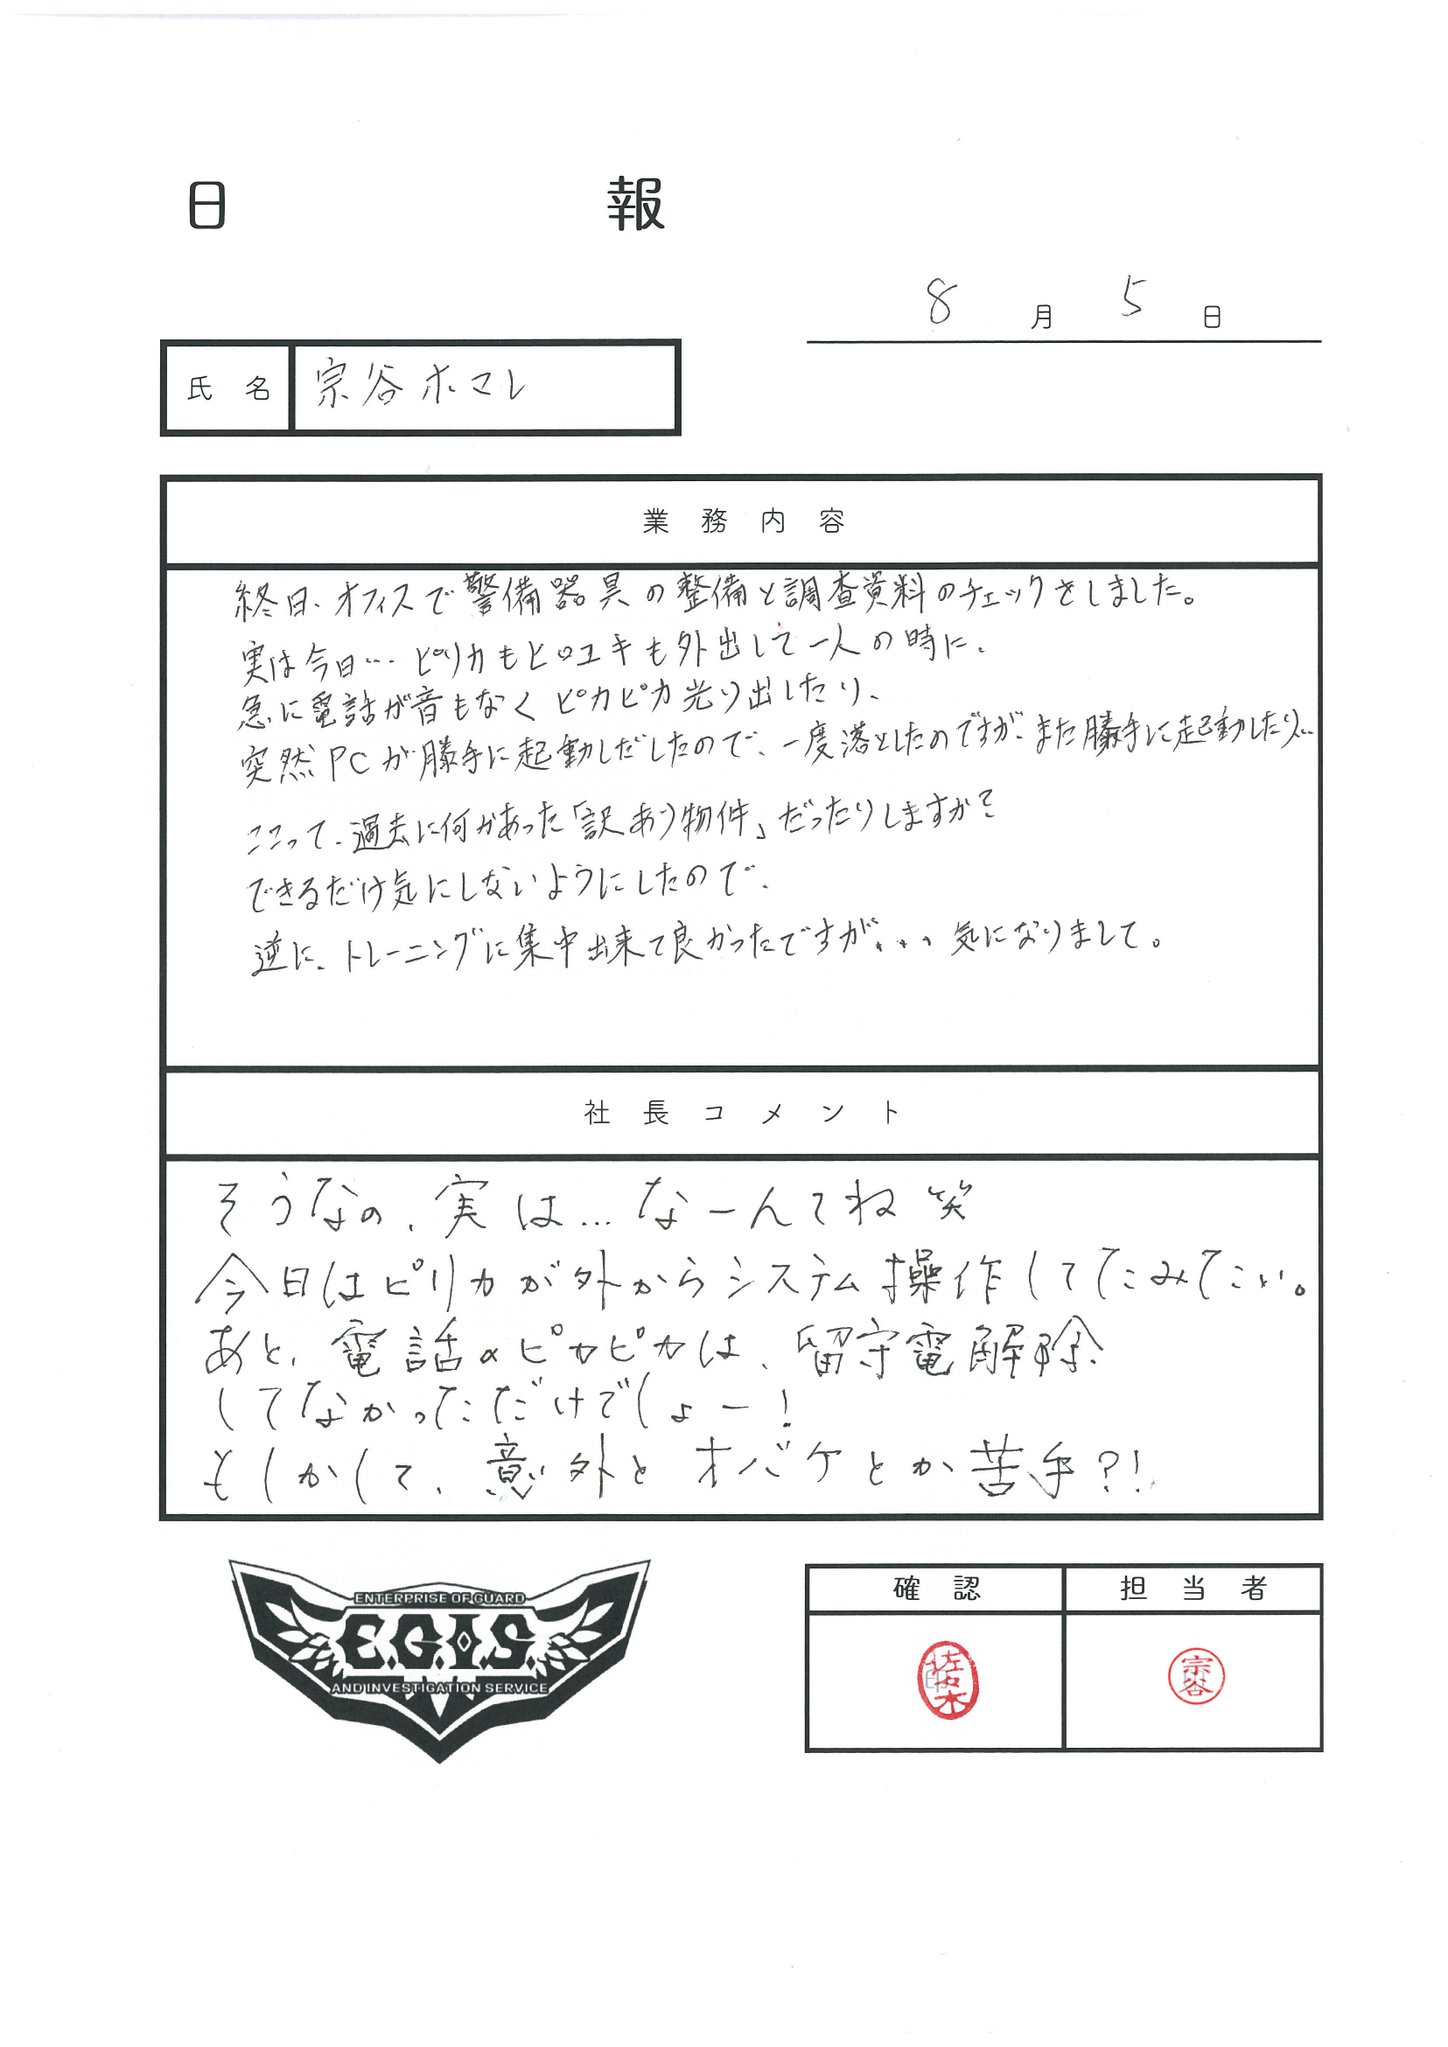 日報
8月5日
氏名 宗谷ホマレ
業務内容
終日、オフィスで警備器具の整備と調査資料のチェックをしました。
実は今日…ピリカもヒロユキも外出して一人の時に、
急に電話が音もなくピカピカ光り出したり、
突然PCが勝手に起動しだしたので、一度落としたのですが、また勝手に起動したり…
ここって、過去に何かあった「訳あり物件」だったりしますか?
できるだけ気にしないようにしたので、
逆に、トレーニングに集中出来て良かったですが、、、気になりまして。
社長コメント
そうなの、実は…なーんてね笑
今日はピリカが外からシステム操作してたみたい。
あと、電話のピカピカは、留守電解除
してなかっただけでしょー!
もしかして、意外とオバケとか苦手?!
ENTERPRISE OF GUARD
E.G.I.S.
AND INVESTIGATION SERVICE
確認 担当者
佐々木 宗谷
印